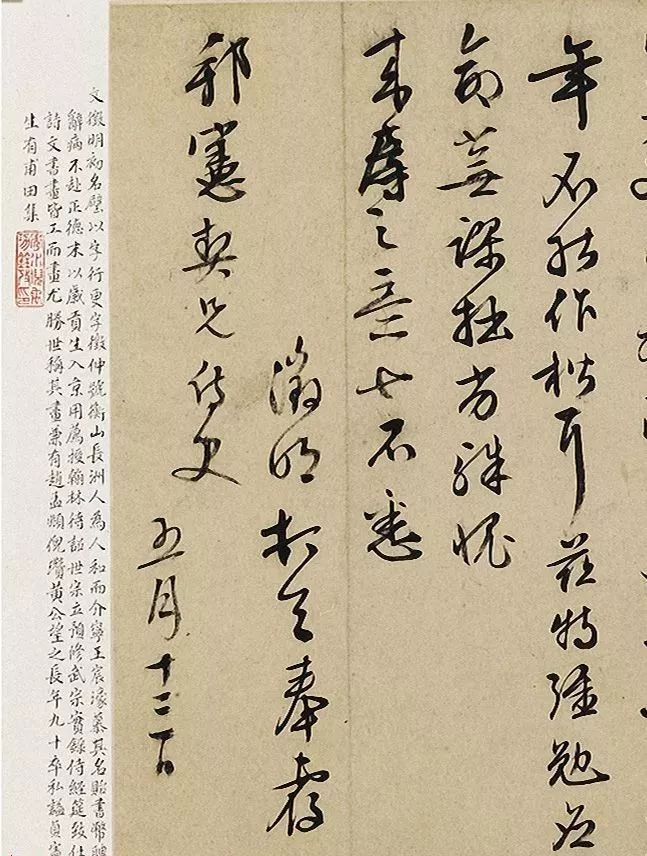 年不能作楷耳茲特強勉
命蕪謬拙劣殊愧
來辱之意也不悉
徵明頓首奉覆
邦憲契兄侍史
五月十三日
文徵明初名壁以字行更字徵仲號衡山長洲人為人和而介寧王宸濠慕其名貽書幣聘
辭病不赴正德末以歲貢生入京用薦授翰林待詔世宗立預修武宗實錄侍經筵致仕
詩文書畫皆工而畫尤勝世稱其畫兼有趙孟頫倪瓚黃公望之長年九十卒私謚貞憲
生有甫田集